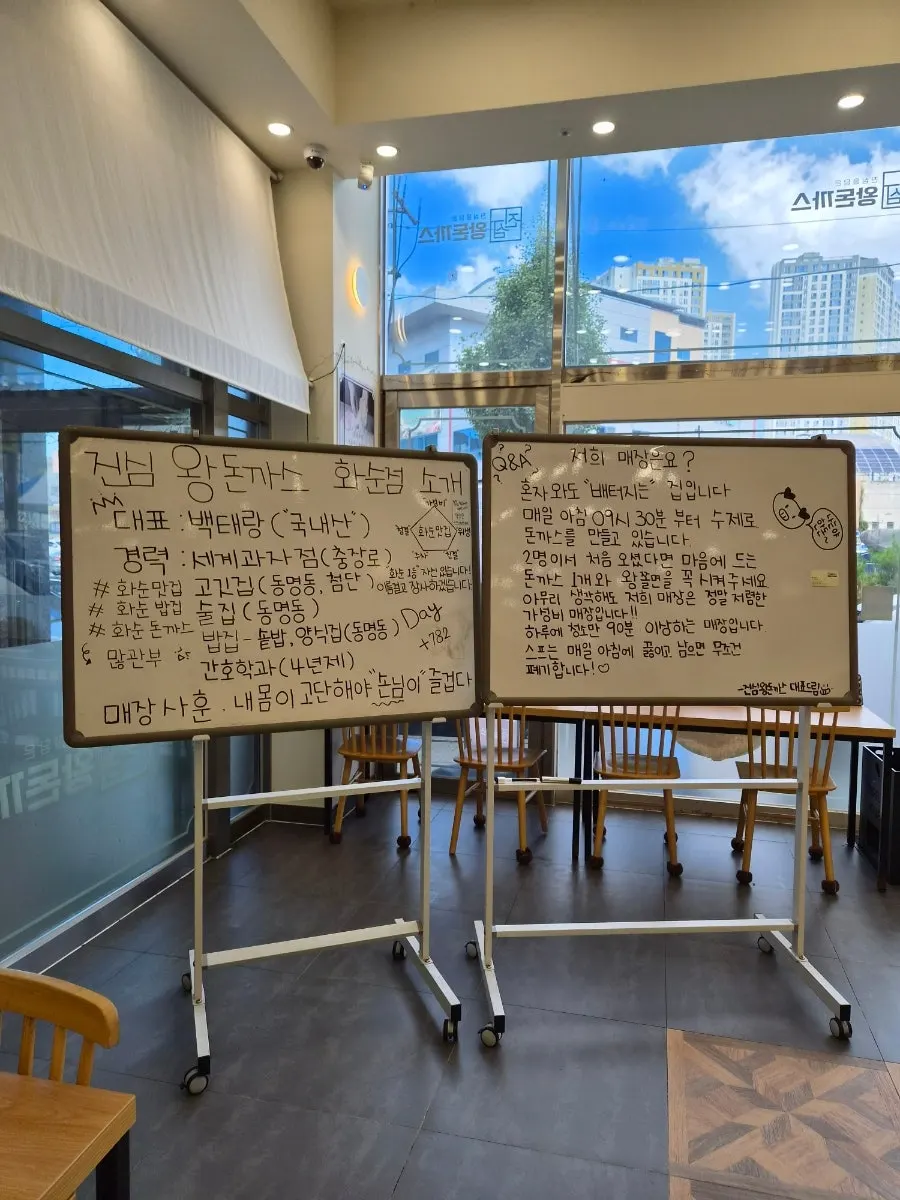 진심 왕돈까스 화순점 소개
대표 : 백태랑 ("국내산")
경력 : 세계과자점 (충장로)
고깃집 (동명동, 첨단)
술집 (동명동)
밥집 - 솥밥, 양식집 (동명동)
간호학과 (4년제)
# 화순맛집
# 화순 밥집
# 화순 돈까스
많관부
가성비
청결
화순맛집
위생
친절
"화순 1등" 자신 있습니다!
이름걸고 장사하겠습니다
Day
+782
매장사훈 . 내몸이 고단해야 "손님이" 즐겁다
Q&A
저희 매장은요?
혼자와도 "배터지는" 집입니다
매일 아침 09시 30분 부터 수제로
돈까스를 만들고 있습니다.
2명이서 처음 오셨다면 마음에 드는
돈까스 1개와 왕쫄면을 꼭 시켜주세요
아무리 생각해도 저희 매장은 정말 저렴한
가성비 매장입니다!!
하루에 청소만 90분 이상하는 매장입니다
스프는 매일 아침에 끓이고 남으면 무조건
폐기합니다!♡
-진심왕돈까스 대표드림
진심
왕돈까스
진심
왕돈까스